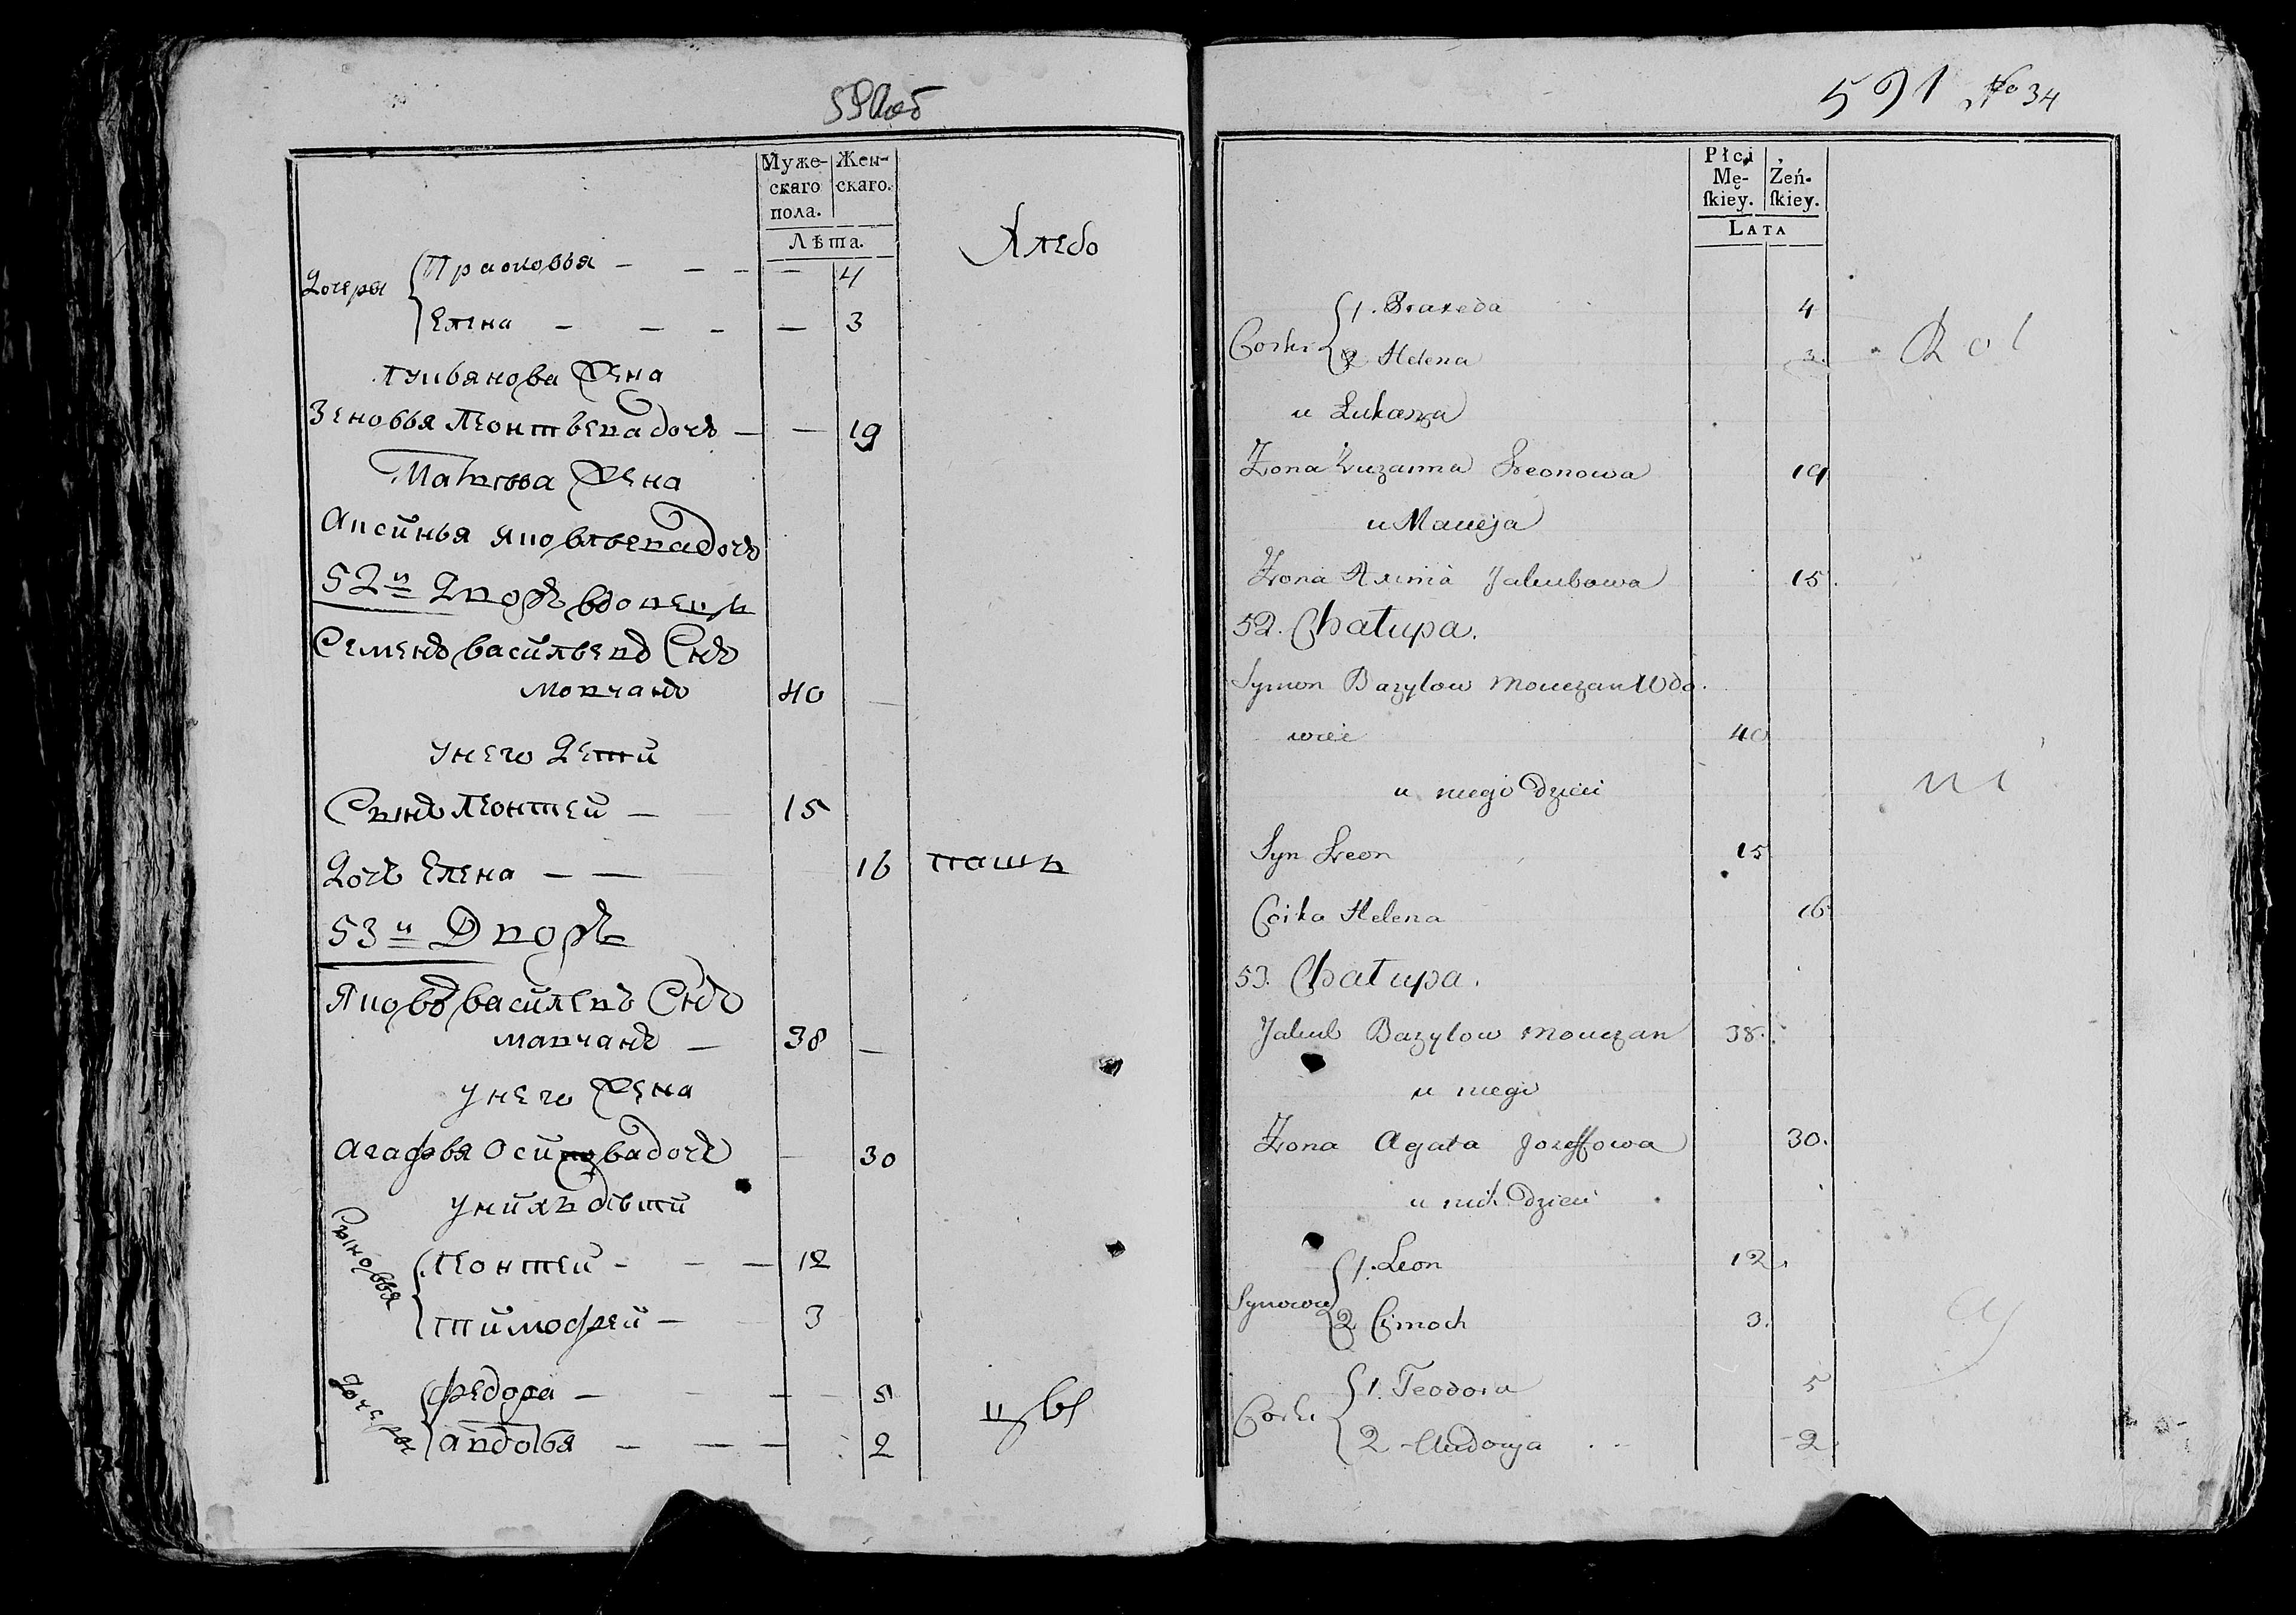 590об
Муже-
скаго
пола.
Жен-
скаго.
Лѣта.
Хлебо
Дочеры
Прасковья — — — — 4
Елена — — — — 3
Лукьянова Жена
Зеновья Леонтьева дочь — — 19
Жена
Аксинья Яковльева дочь
52й Дворъ вдовецъ
Семенъ васильевъ Снъ
Мовчанъ 40 —
Унего Дети
Сынъ Леонтей — 15
Дочь Елена — — 16 пашъ
53й Дворъ
Яковъ василевъ Снъ
мовчанъ — 38 —
Унего Жена
Агафья Осипова дочь — 30
Унихъ дѣти
Сыновья
Леонтей - — — 12
Тимофей — 3
дочеры
федора — — 5
авдотья — — — 2
цы
591 No 34
Płci
Mę-
ſkiey.
Żeń-
ſkiey.
LATA
Corki
1. Praxeda 4
2 Helena 3
Rol
u Łukasza
Zona Zuzanna Leonowa 19
u Macieja
Zona Axinia Jakubowa 15.
52. Chałupa.
Symon Bazylow Mouczan Wdo.
wiec 40
u niego Dzieci
ni
Syn Leon 15
Corka Helena 16
53. Chałupa.
Jakub Bazylow Mouczan 38.
u niego
Zona Agata Jozeffowa 30.
u nich Dzieci
Synowie
1. Leon 12.
2 Cimoch 3.
cy
Corki
1. Teodora 5
2 Audocya 2